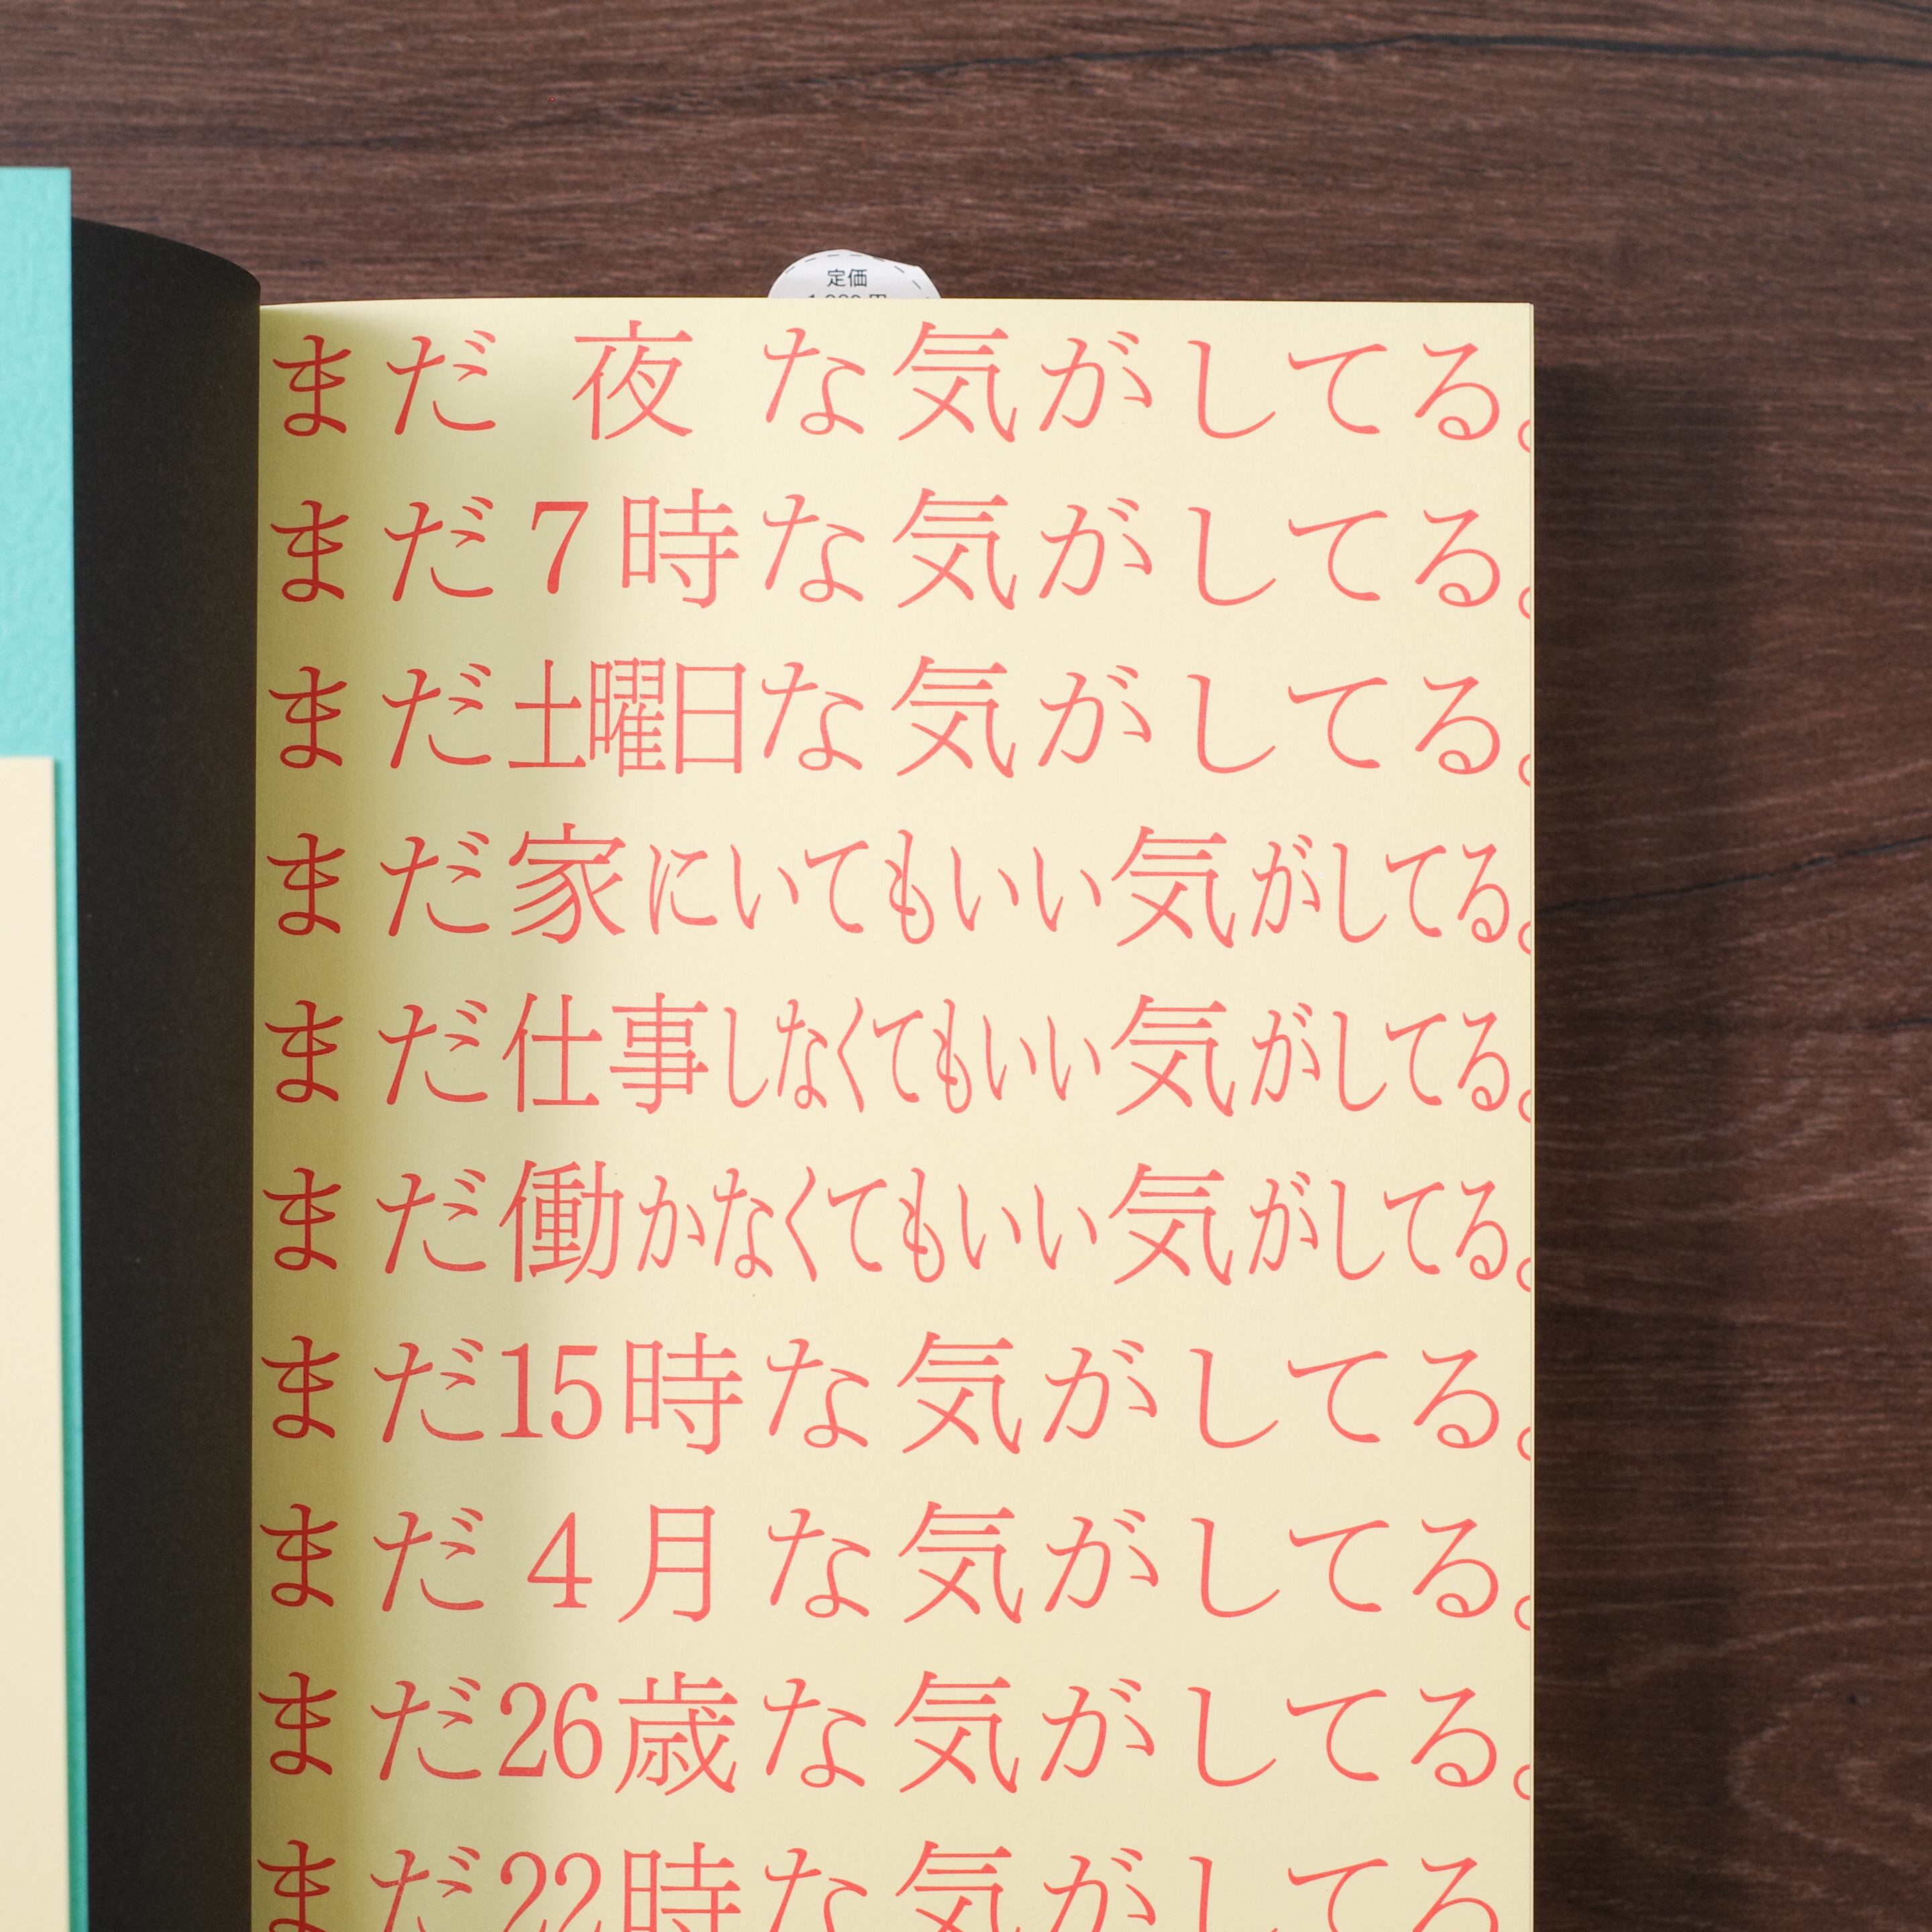 定価
まだ夜な気がしてる。
まだ7時な気がしてる。
まだ土曜日な気がしてる。
まだ家にいてもいい気がしてる。
まだ仕事しなくてもいい気がしてる。
まだ働かなくてもいい気がしてる。
まだ15時な気がしてる。
まだ4月な気がしてる。
まだ26歳な気がしてる。
まだ22時な気がしてる